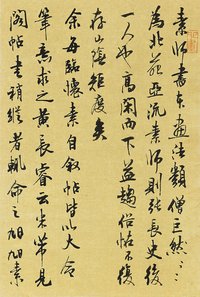 素師書本畫法類僧巨然〻〻
為北苑亞流素師則張長史後
一人也高閑而下益趨俗怗不復
存山陰矩度矣
余每臨懷素自叙帖皆以大令
筆意求之黃長睿云米芾見
閣帖書稍縱者輒命之旭旭素